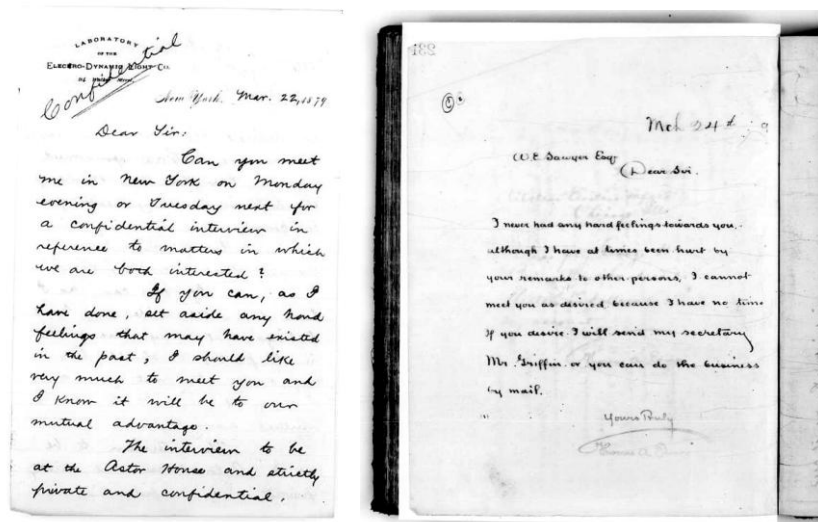 LABORATORY
OF THE
ELECTRO-DYNAMIC LIGHT CO.
Confidential
New York, Mar. 22, 1879
Dear Sir:
Can you meet
me in New York on Monday
evening or Tuesday next for
a confidential interview in
reference to matters in which
we are both interested?
If you can, as I
have done, set aside any hard
feelings that may have existed
in the past, I should like
very much to meet you and
I know it will be to our
mutual advantage.
The interview to be
at the Astor House and strictly
private and confidential.
231
Mch 24th 9
W.E. Sawyer Esq
Dear Sir.
I never had any hard feelings towards you,
although I have at times been hurt by
your remarks to other persons, I cannot
meet you as desired because I have no time
If you desire I will send my secretary
Mr. Griffin or you can do the business
by mail.
Yours Truly
Thomas A.